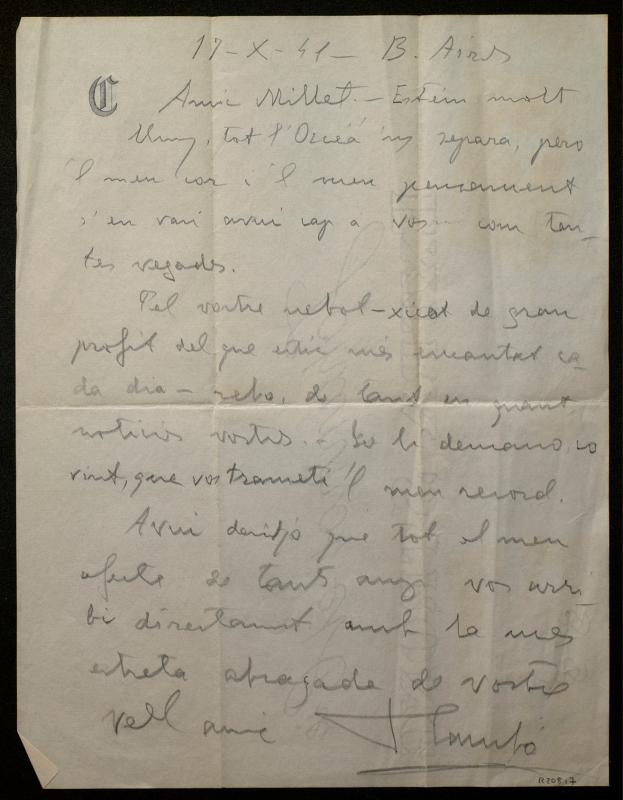 17-X-41- B. Aires
C
Amic Millet.- Estem molt
lluny, tot l'Oceá 'ns separa, pero
'l meu cor i 'l meu pensament
s'en van avui cap a vos com tan-
tes vegades.
Pel vostre nebot-xicot de gran
profit del que estic més encantat ca
da dia- rebo, de tant en quant
noticies vostres.- Jo li demano, so
vint, que vos trameti 'l meu record.
Avui desitjo que tot el meu
afecte de tants anys vos arri-
bi directament amb la més
estreta abraçada de vostre
vell amic F Cambó
R 208.17